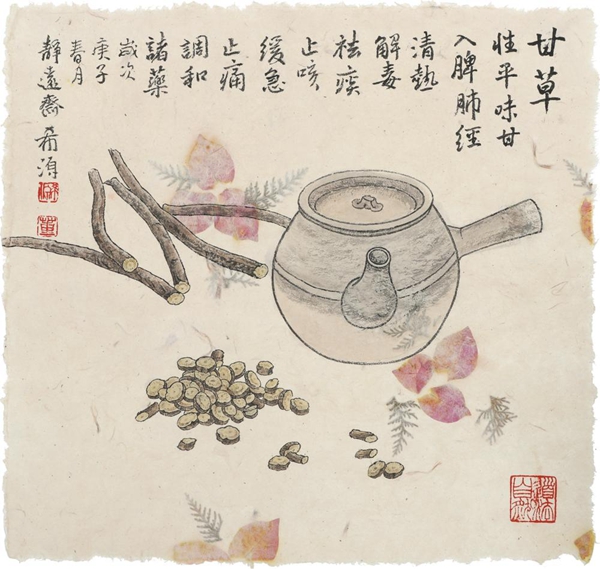 甘草
性平味甘
入脾肺經
清熱
解毒
祛痰
止咳
緩急
止痛
調和
諸藥
歲次
庚子
春月
靜遠齋希